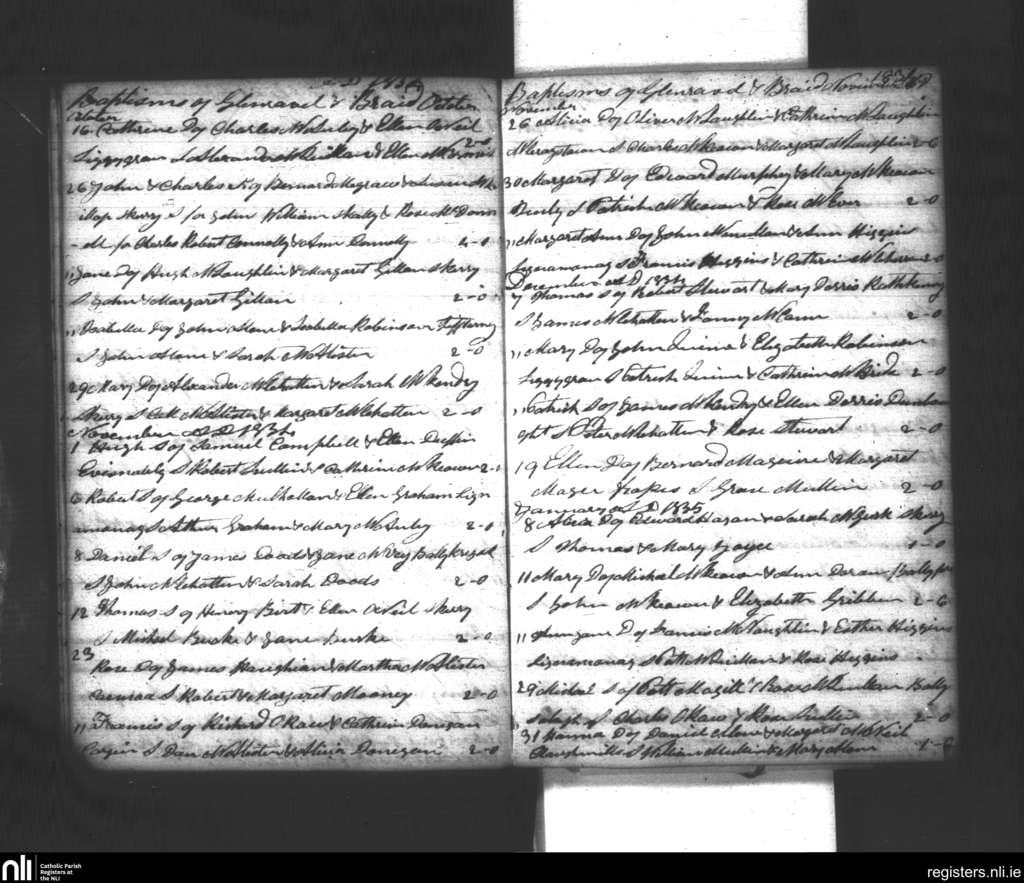 A.D. 1834
Baptisms of Glenravel & Braid October
October
16 Catherine D of Charles McAuley & Ellen O'Neil
Lizzygran S Alexander McQuillan & Ellen 2-0
26 John & Charles S of Bernard Magraw & Susan McK
illop Skerry S for John William Skally & Rose McDonn
-ell for Charles Robert Connolly & Ann Donnolly 4-0
11 Jane D of Hugh McLaughlin & Margaret Gillan Skerry
S John & Margaret Gillan 2-0
11 Isabella D of John Slane & Isabella Robinson
S John Slane & Sarah McAlister 2-0
29 Mary D of Alexander McIlhatton & Sarah McKendry
Skerry S McAlister & Margaret McIlhatton 2-0
November A.D. 1834
1 Hugh S of Samuel Campbell & Ellen Duffin
S Robert Mullin & Catherine McKeown 2-
6 Robert S of George Mulhollan & Ellen Graham Lign
amanag S Arthur Graham & Mary McAuley 2-0
8 Daniel S of James Doods & Jane McVey
S John McIlhatton & Sarah Doods 2-0
12 Thomas S of Henry & Ellen O'Neil Skerry
S Michael Burke & Jane Burke 2-0
23
Rose D of James Haughian & Martha McAlister
S Robert & Margaret Mooney 2-0
11 Francis S of Richard O'Kane & Catherin Danegan
S Dan McAlister & Alicia Donegan 2-0
1834
Baptisms of Glenravel & Braid November
November
26 Alicia D of Oliver McLaughlin & Catherin McLaughlin
S Charles McKeown & Margaret McLaughlin 2-6
30 Margaret D of Edward Murphy & Mary McKeown
S Patrick McKeown & Rose McEver 2-0
11 Margaret Ann D of John McQuillan & Ann Higgins
Lignamanag S Francis Higgins & Catherin 2-0
December A.D. 1834
7 Thomas S of Robert Stewart & Mary Dorris Rathkenny
S James McIlhatton & Fanny McCann 2-0
11 Mary D of John Quinn & Elizabeth Robinson
Lizzygran S Patrick Quinn & Catherin McBride 2-0
11 Patrick S of James McKendry & Ellen Dorris Dunbou
ght S Peter McIlhatton & Rose Stewart 2-0
19 Ellen D of Bernard Maguire & Margaret
Mager S Grace Mullin 2-0
January A.D. 1835
8 Alicia D of Edward Hagan & Sarah McGurk Skerry
S Thomas & Mary Joyce 1-0
11 Mary D of Michael McKeown & Ann Doran
S John McKeown & Elizabeth Gribben 2-6
11 D of Francis McNaughtin & Esther Higgins
Lignamanag S Patt McQuillan & Rose Higgins
29 Michael S of Patt Magill & Rose McQuillan Bally
S Charles O'Kane & Rose 2-0
31 Hanna D of Daniel & Margaret McNeil
Cloughmills S William Mullin & Mary 1-6
nli
Catholic Parish
Registers at
the NLI
registers.nli.ie